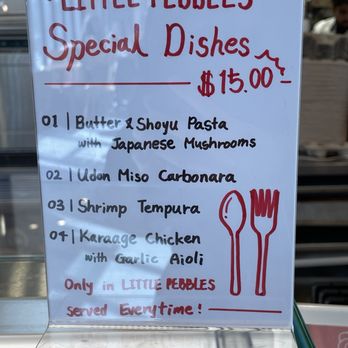 LITTLE PEBBLES
Special Dishes
$15.00
01 | Butter & Shoyu Pasta
with Japanese Mushrooms
02 | Udon Miso Carbonara
03 | Shrimp Tempura
04 | Karaage Chicken
with Garlic Aioli
Only in LITTLE PEBBLES
served Everytime!